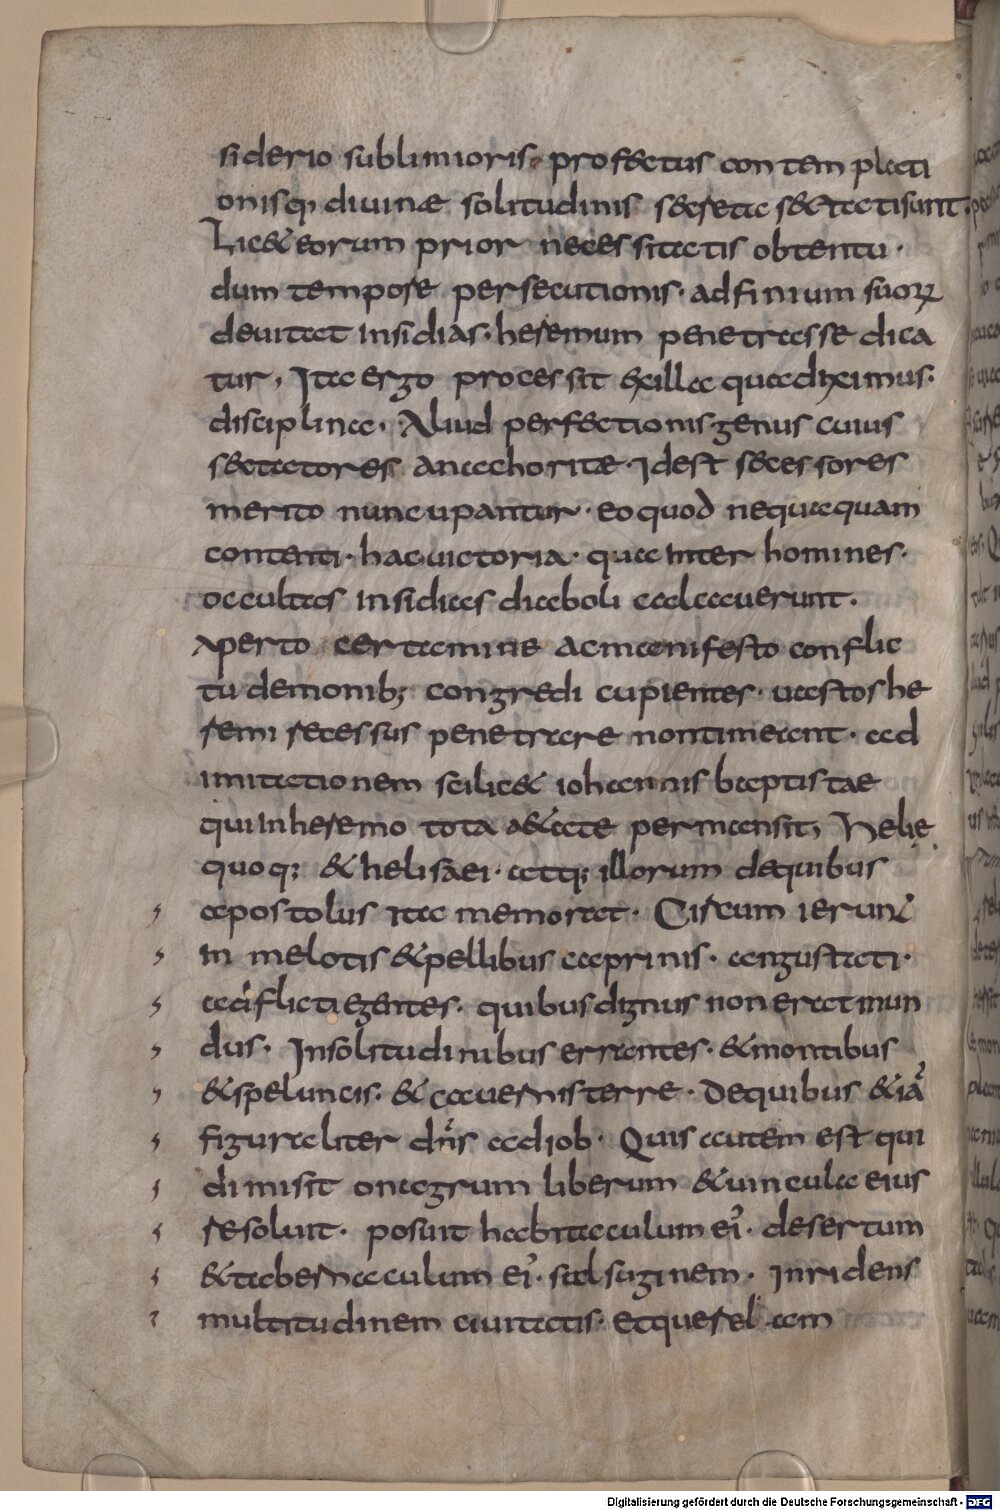 siderio sublimioris· profectus contemplati
onisq; diuinæ solitudinis secreta sectati sunt.
Licet eorum prior necessitatis obtentu·
dum tempore persecutionis· ad finium suoꝝ
deuitat insidias· heremum penetrasse dica
tur, Ita ergo processit ex illa qua diximus·
disciplina· Aliud perfectionis genus cuius
sectatores anachoritæ· idest secessores
merito nuncupantur· eo quod nequaquam
contenti· hac uictoria· qua inter homines·
occultas insidias diaboli calcauerunt·
Aperto certamine ac manifesto conflic
tu demonib; congredi cupientes· uastos he
remi recessus penetrare non timeant· ad
imitationem scilicet iohannis baptistae
qui in heremo tota aetate permansit, Helię
quoq; & helisaei· atq; illorum de quibus
apostolus ita memorat· Circum ierunt
in melotis & pellibus caprinis· angustiati·
adflicti egentes· quibus dignus non erat mun
dus· In solitudinibus errantes· & montibus
& speluncis· & cauernis terre· De quibus & iā
figuraliter dn̄s ad iob· Quis autem est qui
dimisit onagrum liberum & uincula eius
resoluit· posuit habitaculum ei'· desertum
& tabernaculum ei'· salsuginem· Inridens
multitudinem ciuitatis· et querel am
Digitalisierung gefördert durch die Deutsche Forschungsgemeinschaft - DFG